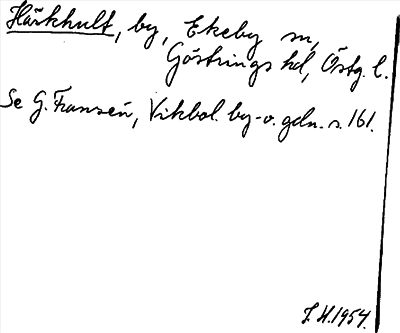 Härkhult, by, Ekeby sn,
Göstrings hd, Östg. l.
Se G. Fransén, Vikbol. by- o. gdn. s. 161.
J. H. 1954.